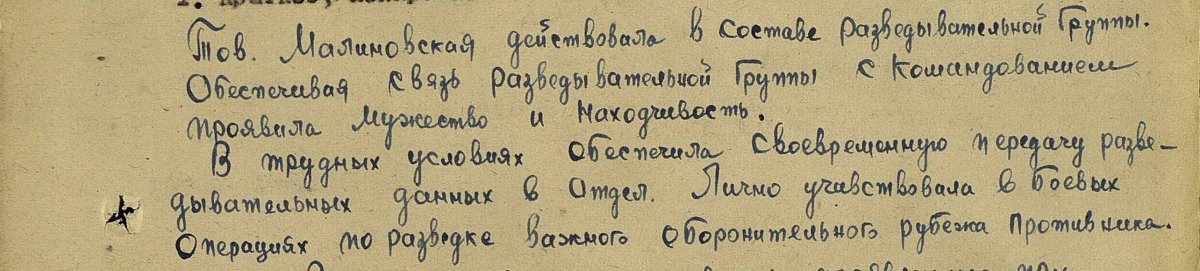 Тов. Малиновская действовала в составе разведывательной группы.
Обеспечивая связь разведывательной группы с командованием
проявила мужество и находчивость.
В трудных условиях обеспечила своевременную передачу разве-
дывательных данных в Отдел. Лично учавствовала в боевых
операциях по разведке важного оборонительного рубежа противника.